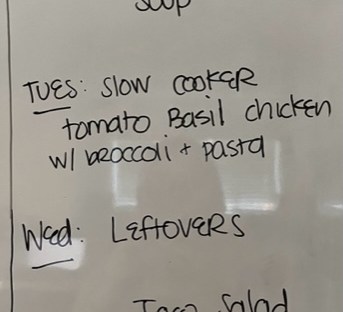 soup
TUES: SLOW COOKER
tomato Basil chicken
w/ broccoli + pasta
Wed: LEFTOVERS
Taco Salad